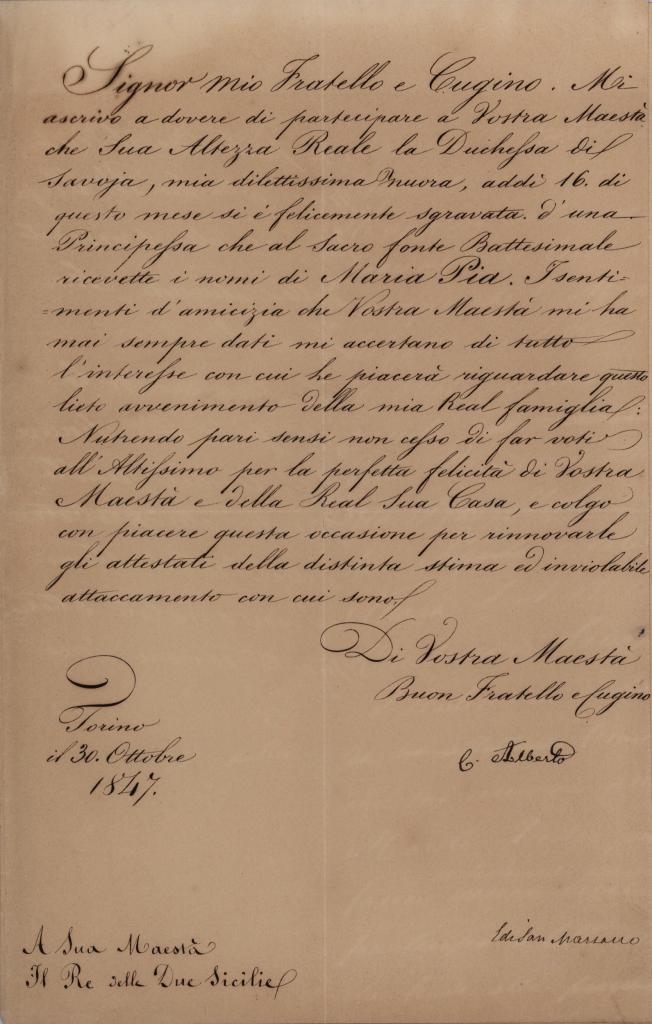 Signor mio Fratello e Cugino. Mi
ascrivo a dovere di partecipare a Vostra Maestà
che Sua Altezza Reale la Duchessa di
Savoja, mia dilettissima Nuora, addì 16. di
questo mese si è felicemente sgravata d'una
Principessa che al Sacro fonte Battesimale
ricevette i nomi di Maria Pia. I senti=
=menti d'amicizia che Vostra Maestà mi ha
mai sempre dati mi accertano di tutto
l'interesse con cui Le piacerà riguardare questo
lieto avvenimento della mia Real famiglia:
Nutrendo pari sensi non cesso di far voti
all'Altissimo per la perfetta felicità di Vostra
Maestà e della Real Sua Casa, e colgo
con piacere questa occasione per rinnovarle
gli attestati della distinta stima ed inviolabile
attaccamento con cui sono
Di Vostra Maestà
Buon Fratello e Cugino
C. Alberto
Torino
il 30. Ottobre
1847.
A Sua Maestà
Il Re delle Due Sicilie